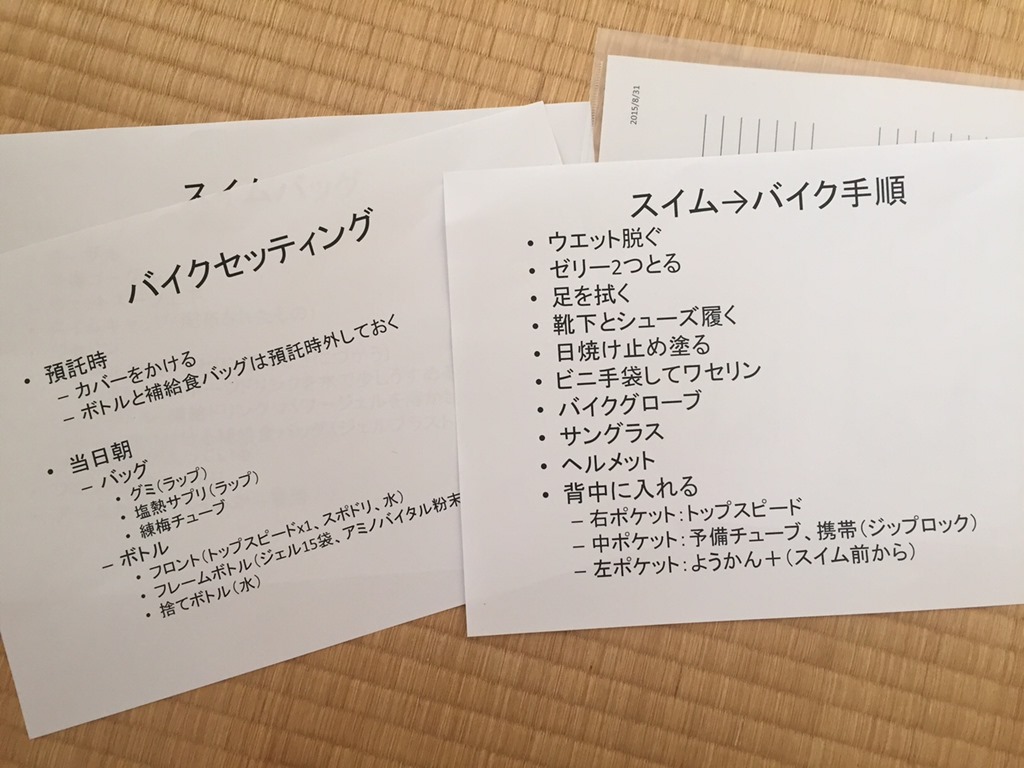 2015/8/31
スイムバッグ
バイクセッティング
• 預託時
– カバーをかける
– ボトルと補給食バッグは預託時外しておく
• 当日朝
– バッグ
• グミ（ラップ）
• 塩熱サプリ（ラップ）
• 練梅チューブ
– ボトル
• フロント（トップスピードx1、スポドリ、水）
• フレームボトル（ジェル15袋、アミノバイタル粉末
• 捨てボトル（水）
スイム→バイク手順
• ウエット脱ぐ
• ゼリー2つとる
• 足を拭く
• 靴下とシューズ履く
• 日焼け止め塗る
• ビニ手袋してワセリン
• バイクグローブ
• サングラス
• ヘルメット
• 背中に入れる
– 右ポケット：トップスピード
– 中ポケット：予備チューブ、携帯（ジップロック）
– 左ポケット：ようかん＋（スイム前から）